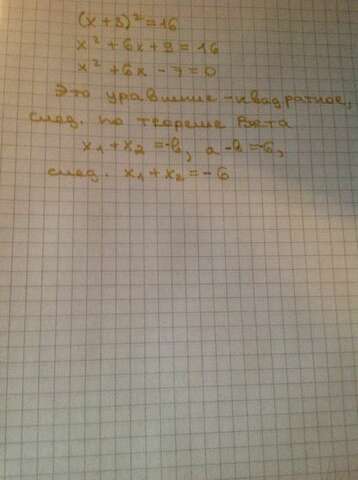 (x+3)²=16
x²+6x+9=16
x²+6x-7=0
Это уравнение -квадратное,
след. по теореме Виета
x₁+x₂=-b, а -b=-6,
след. x₁+x₂=-6